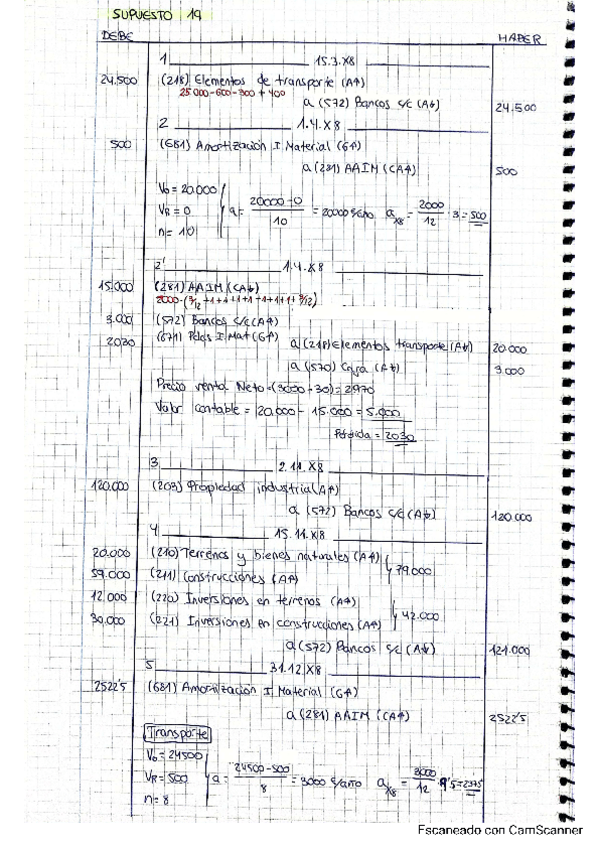 SUPUESTO 19
DEBE HABER
1 15.3.X8
24.500 (218) Elementos de transporte (A↑)
25000-600-300+400
a (572) Bancos c/c (A↓) 24.500
2 1.4.X8
500 (681) Amortización I Material (G↑)
a (281) AAIM (CA↑) 500
V₀ = 20.000
VR = 0 a = 20000-0 / 10 = 2000 €/año aX8 = 2000/12 · 3 = 500
n = 10
2' 1.4.X8
15.000 (281) AAIM (CA↓)
2000·(3/12+1+1+1+1+1+1+1+3/12)
3.000 (572) Bancos c/c (A↑)
2030 (671) Pdas I Mat (G↑) a (218) Elementos transporte (A↓) 20.000
a (570) Caja (A↓)
Precio venta Neto = (3000-30) = 2970
Valor contable = 20.000 - 15.000 = 5.000
Pérdida = 2030
3 2.11.X8
120.000 (203) Propiedad industrial (A↑)
a (572) Bancos c/c (A↓) 120.000
4 15.11.X8
20.000 (210) Terrenos y bienes naturales (A↑)
59.000 (211) Construcciones (A↑) 79.000
12.000 (220) Inversiones en terrenos (A↑)
30.000 (221) Inversiones en construcciones (A↑) 42.000
a (572) Bancos c/c (A↓) 121.000
5 31.12.X8
2522'5 (681) Amortización I Material (G↑)
a (281) AAIM (CA↑) 2522'5
Transporte
V₀ = 24500
VR = 500 a = 24500-500 / 8 = 3000 €/año aX8 = 3000/12 · 9'5 = 2375
n = 8
Escaneado con CamScanner